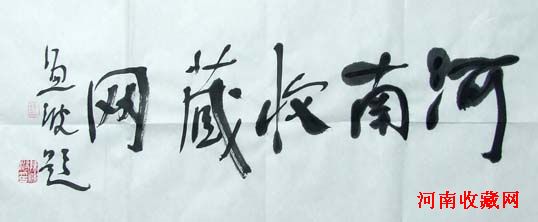 河南收藏网
题
河南收藏网